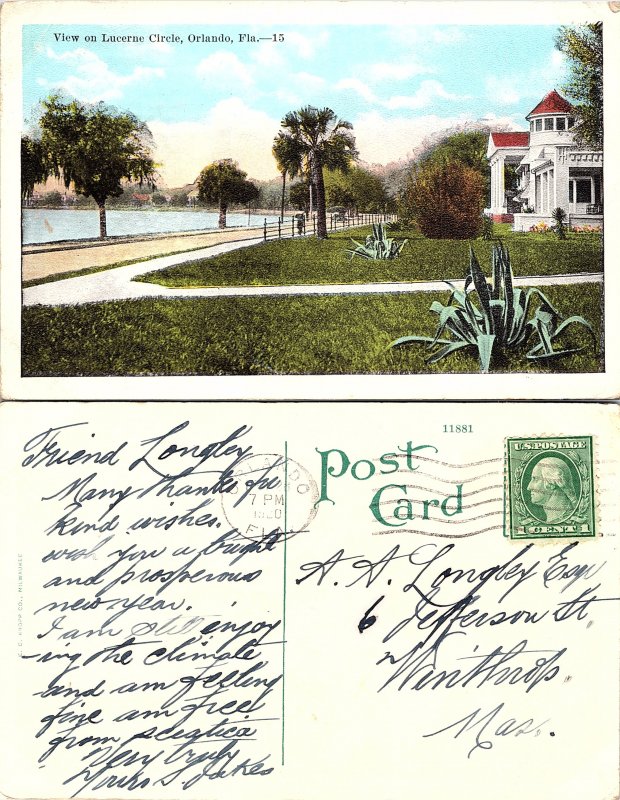 View on Lucerne Circle, Orlando, Fla.—15
Friend Longley
Many thanks for
kind wishes.
wish you a bright
and prosperous
new year.
I am still enjoy
-ing the climate
and am feeling
fine am free
from sciatica
Very truly
Yours S. Oakes
ORLANDO
7 PM
1920
FLA.
11881
Post
Card
U.S. POSTAGE
1 CENT 1
A. A. Longley Esq
6 Jefferson St
Winthrop
Mas.
E. C. KROPP CO., MILWAUKEE